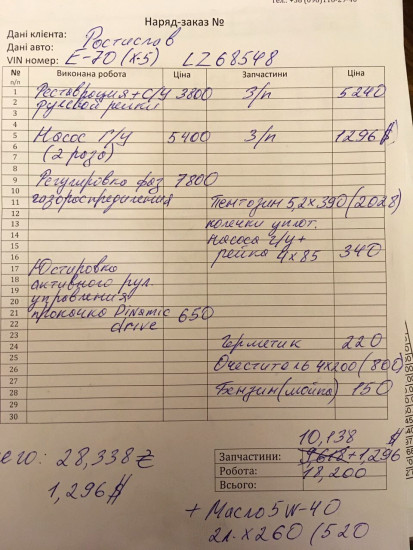 Наряд-заказ №
Дані клієнта: Ростислав
Дані авто: E-70 (X-5) LZ68548
VIN номер:
№ п/п Виконана робота Ціна Запчастини Ціна
1 Реставрация+с/у 3800 З/п 5240
2 рулевой рейки
3
4
5 Насос Г/у 5400 З/п 1296 $
6 (2 раза)
7
8
9 Регулировка фаз 7800
10 газораспределения
11 Пентозин 5,2 x 390 (2028)
12
13 колечки уплот.
14 насоса г/у+
15 рейка 4x85 340
16
17 Юстировка
18 активного рул.
19 управления
20
21 прокачка Dinamic 650
22 drive
23
24 Герметик 220
25
26 Очеститель 4x200 (800)
27
28 Бензин (мойка) 150
29
30
10,138 $
Запчастини: +1,296
Робота: 18,200
Всього:
28,338 ₴
1,296 $
+ Масло 5W-40
2л. x 260 (520